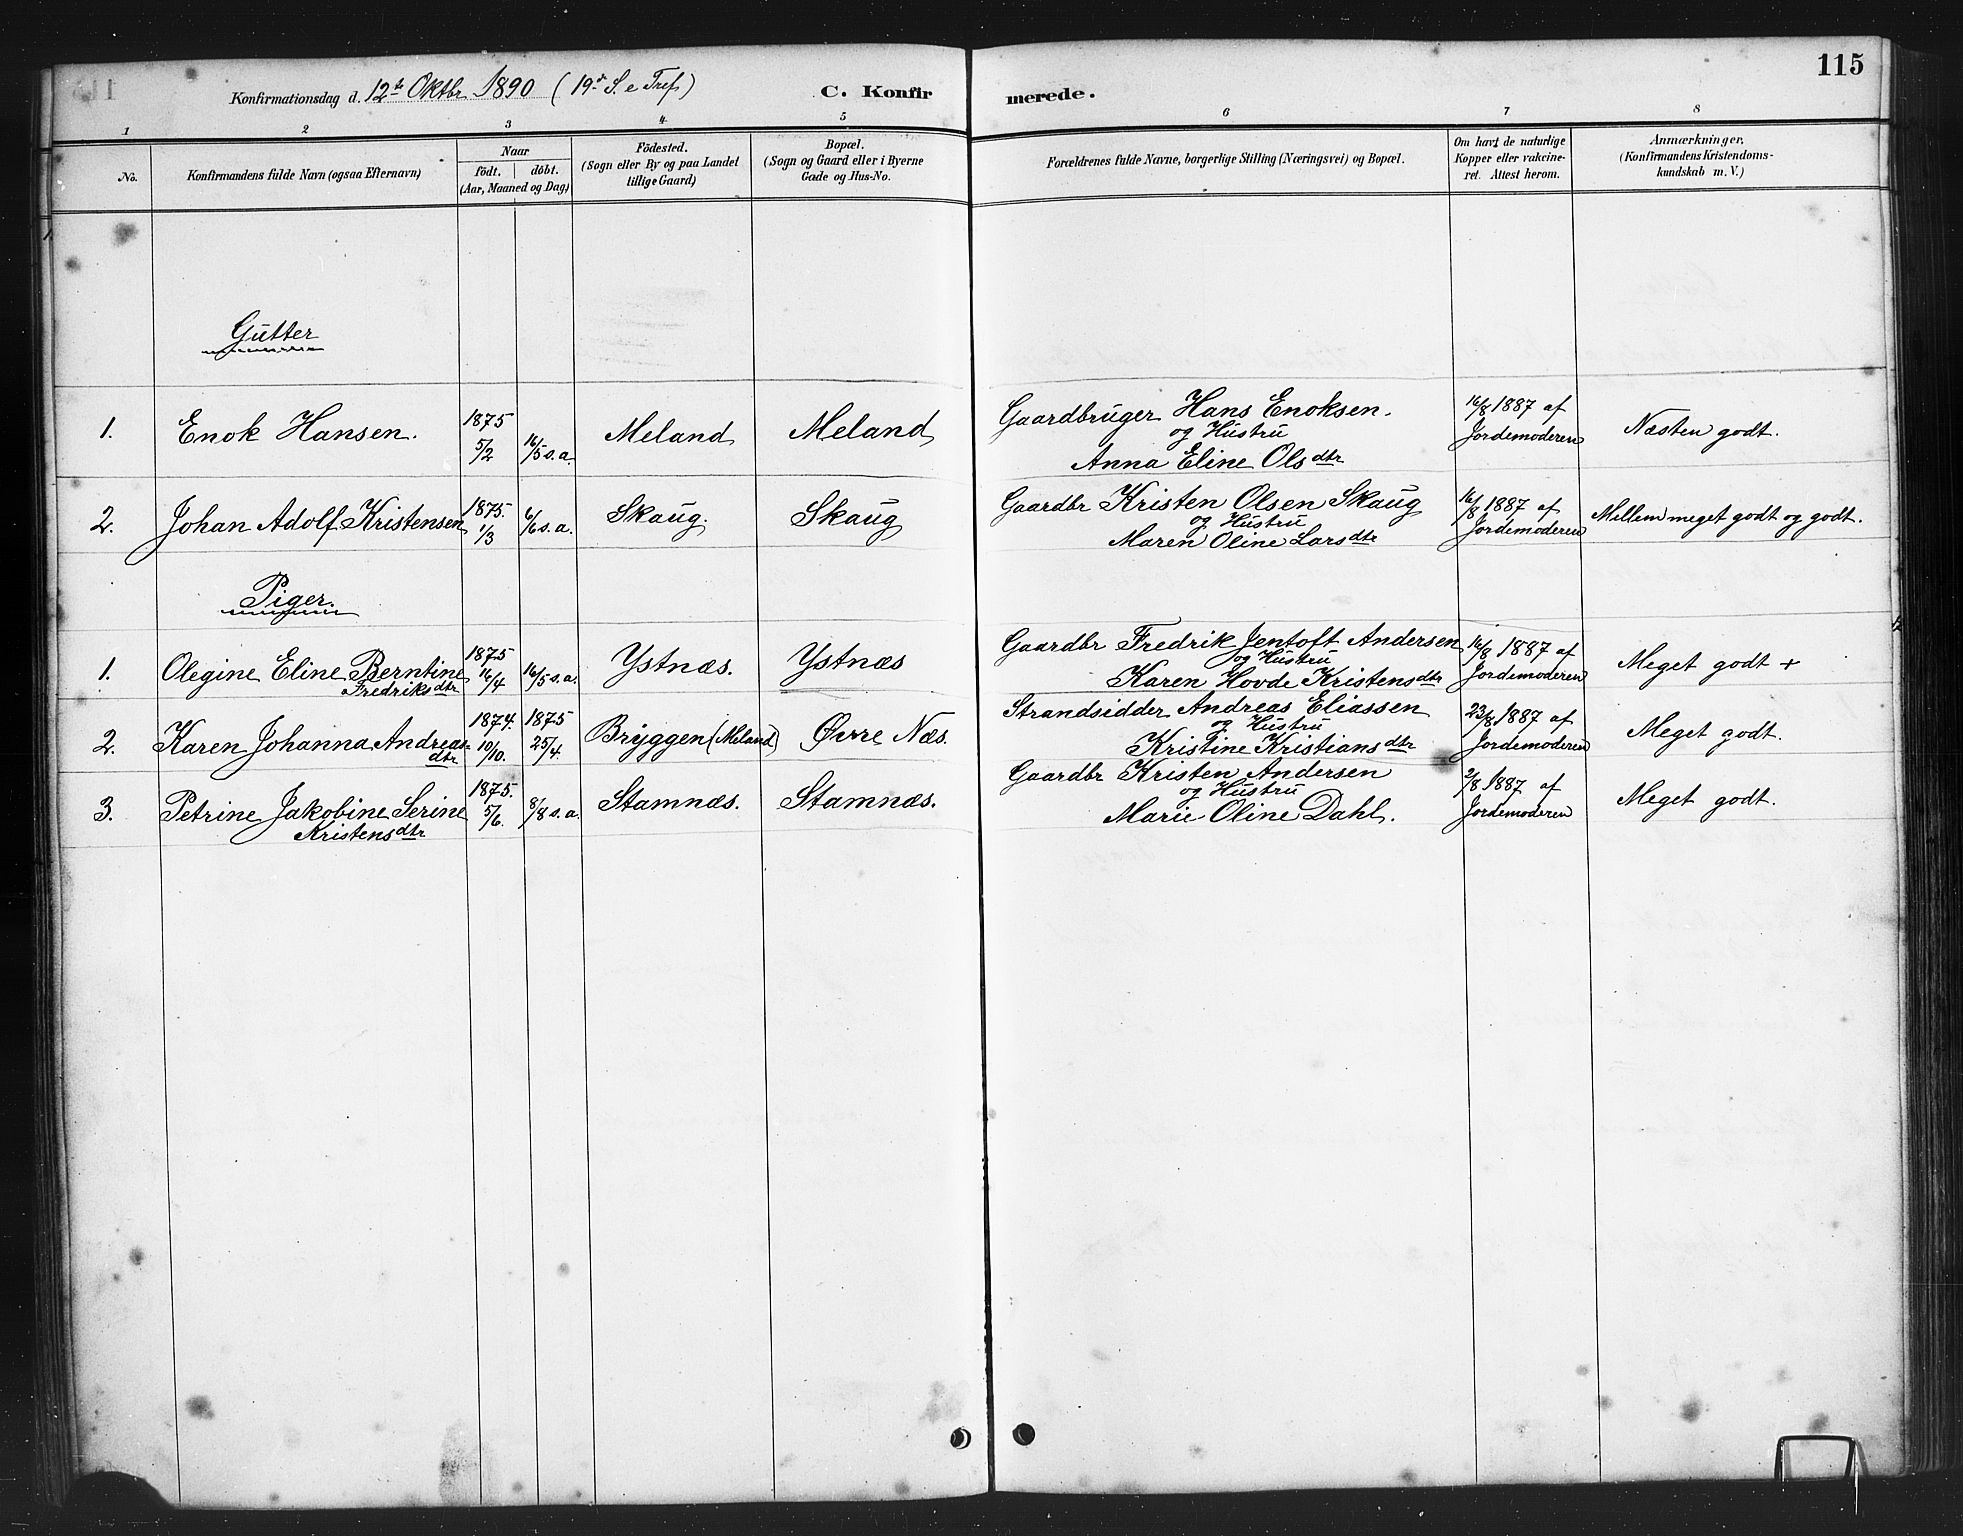 115
Konfirmationsdag d. 12te Oktbr 1890 (19de S. e Tref)
C. Konfirmerede.
1 2 3 4 5 6 7 8
No.
Konfirmandens fulde Navn (ogsaa Efternavn)
Naar
födt. döbt.
(Aar, Maaned og Dag)
Födested.
(Sogn eller By og paa Landet
tillige Gaard)
Bopæl.
(Sogn og Gaard eller i Byerne
Gade og Hus-No.
Forældrenes fulde Navne, borgerlige Stilling (Næringsvei) og Bopæl.
Om havt de naturlige
Kopper eller vakcine-
ret. Attest herom.
Anmærkninger.
(Konfirmandens Kristendoms-
kundskab m. V.)
Gutter
1. Enok Hansen. 1875 5/2 16/5 s. a. Meland Meland
Gaardbruger Hans Enoksen.
og Hustru
Anna Eline Olsdtr
16/8 1887 af
Jordemoderen
Næsten godt.
2. Johan Adolf Kristensen 1875. 1/3 6/6 s. a. Skaug. Skaug
Gaardbr Kristen Olsen Skaug
og Hustru
Maren Oline Larsdtr
16/8 1887 af
Jordemoderen
Mellem meget godt og godt.
Piger.
1. Olegine Eline Berntine
Fredriksdtr
1875 16/4 16/5 s. a. Ystnæs. Ystnæs
Gaardbr Fredrik Jentoft Andersen
og Hustru
Karen Hovde Kristensdtr
16/8 1887 af
Jordemoderen
Meget godt +
2. Karen Johanna Andreas-
dtr
1874. 10/10. 1875 25/4. Bryggen (Meland) Øvre Næs.
Strandsidder Andreas Eliassen
og Hustru
Kristine Kristiansdtr
23/8 1887 af
Jordemoderen
Meget godt.
3. Petrine Jakobine Serine
Kristensdtr
1875. 5/6. 8/8 s. a. Stamnæs. Stamnæs.
Gaardbr Kristen Andersen
og Hustru
Marie Oline Dahl.
2/8 1887 af
Jordemoderen
Meget godt.